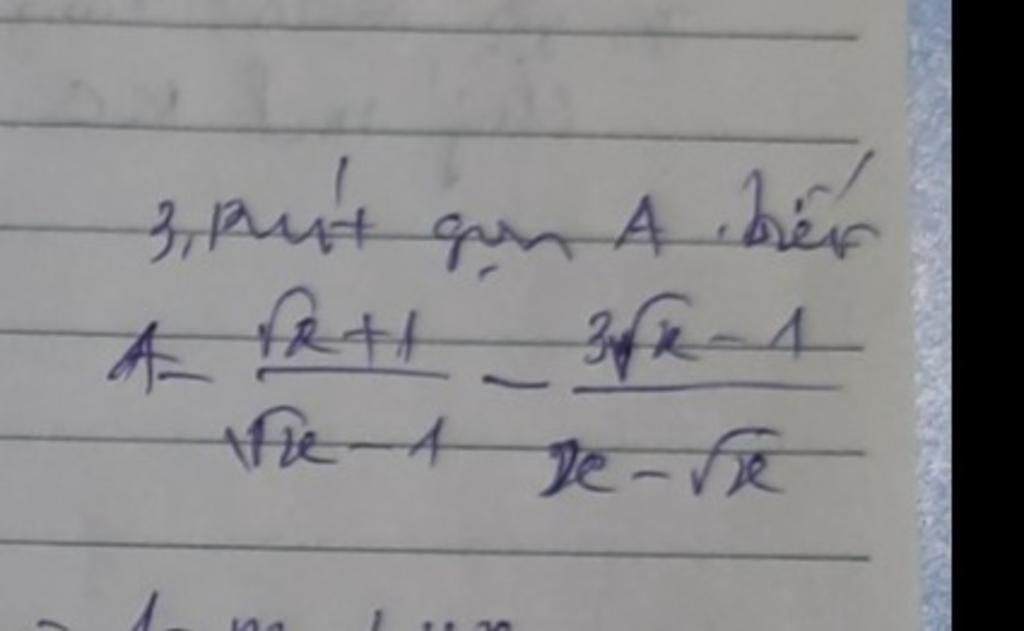 3, Rút gọn A biết
A = \frac{\sqrt{x}+1}{\sqrt{x}-1} - \frac{3\sqrt{x}-1}{x-\sqrt{x}}